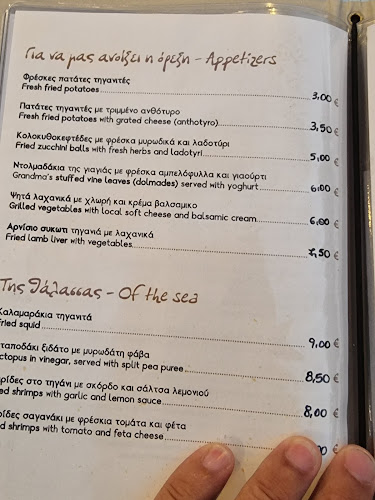 Για να μας ανοίξει η όρεξη - Appetizers
Φρέσκες πατάτες τηγανιτές
Fresh fried potatoes 3,00 €
Πατάτες τηγανιτές με τριμμένο ανθότυρο
Fresh fried potatoes with grated cheese (anthotyro) 3,50 €
Κολοκυθοκεφτέδες με φρέσκα μυρωδικά και λαδοτύρι
Fried zucchini balls with fresh herbs and ladotyri 5,00 €
Ντολμαδάκια της γιαγιάς με φρέσκα αμπελόφυλλα και γιαούρτι
Grandma's stuffed vine leaves (dolmades) served with yoghurt 6,00 €
Ψητά λαχανικά με χλωρή και κρέμα βαλσαμικο
Grilled vegetables with local soft cheese and balsamic cream 6,00 €
Αρνίσιο συκωτι τηγανιά με λαχανικά
Fried lamb liver with vegetables ,50 €
Της θάλασσας - Of the sea
Καλαμαράκια τηγανιτά
fried squid 9,00 €
ταποδάκι ξιδάτο με μυρωδάτη φάβα
ctopus in vinegar, served with split pea puree 8,50 €
ρίδες στο τηγάνι με σκόρδο και σάλτσα λεμονιού
ed shrimps with garlic and lemon sauce 8,00 €
ρίδες σαγανάκι με φρέσκια τομάτα και φέτα
d shrimps with tomato and feta cheese 0 €